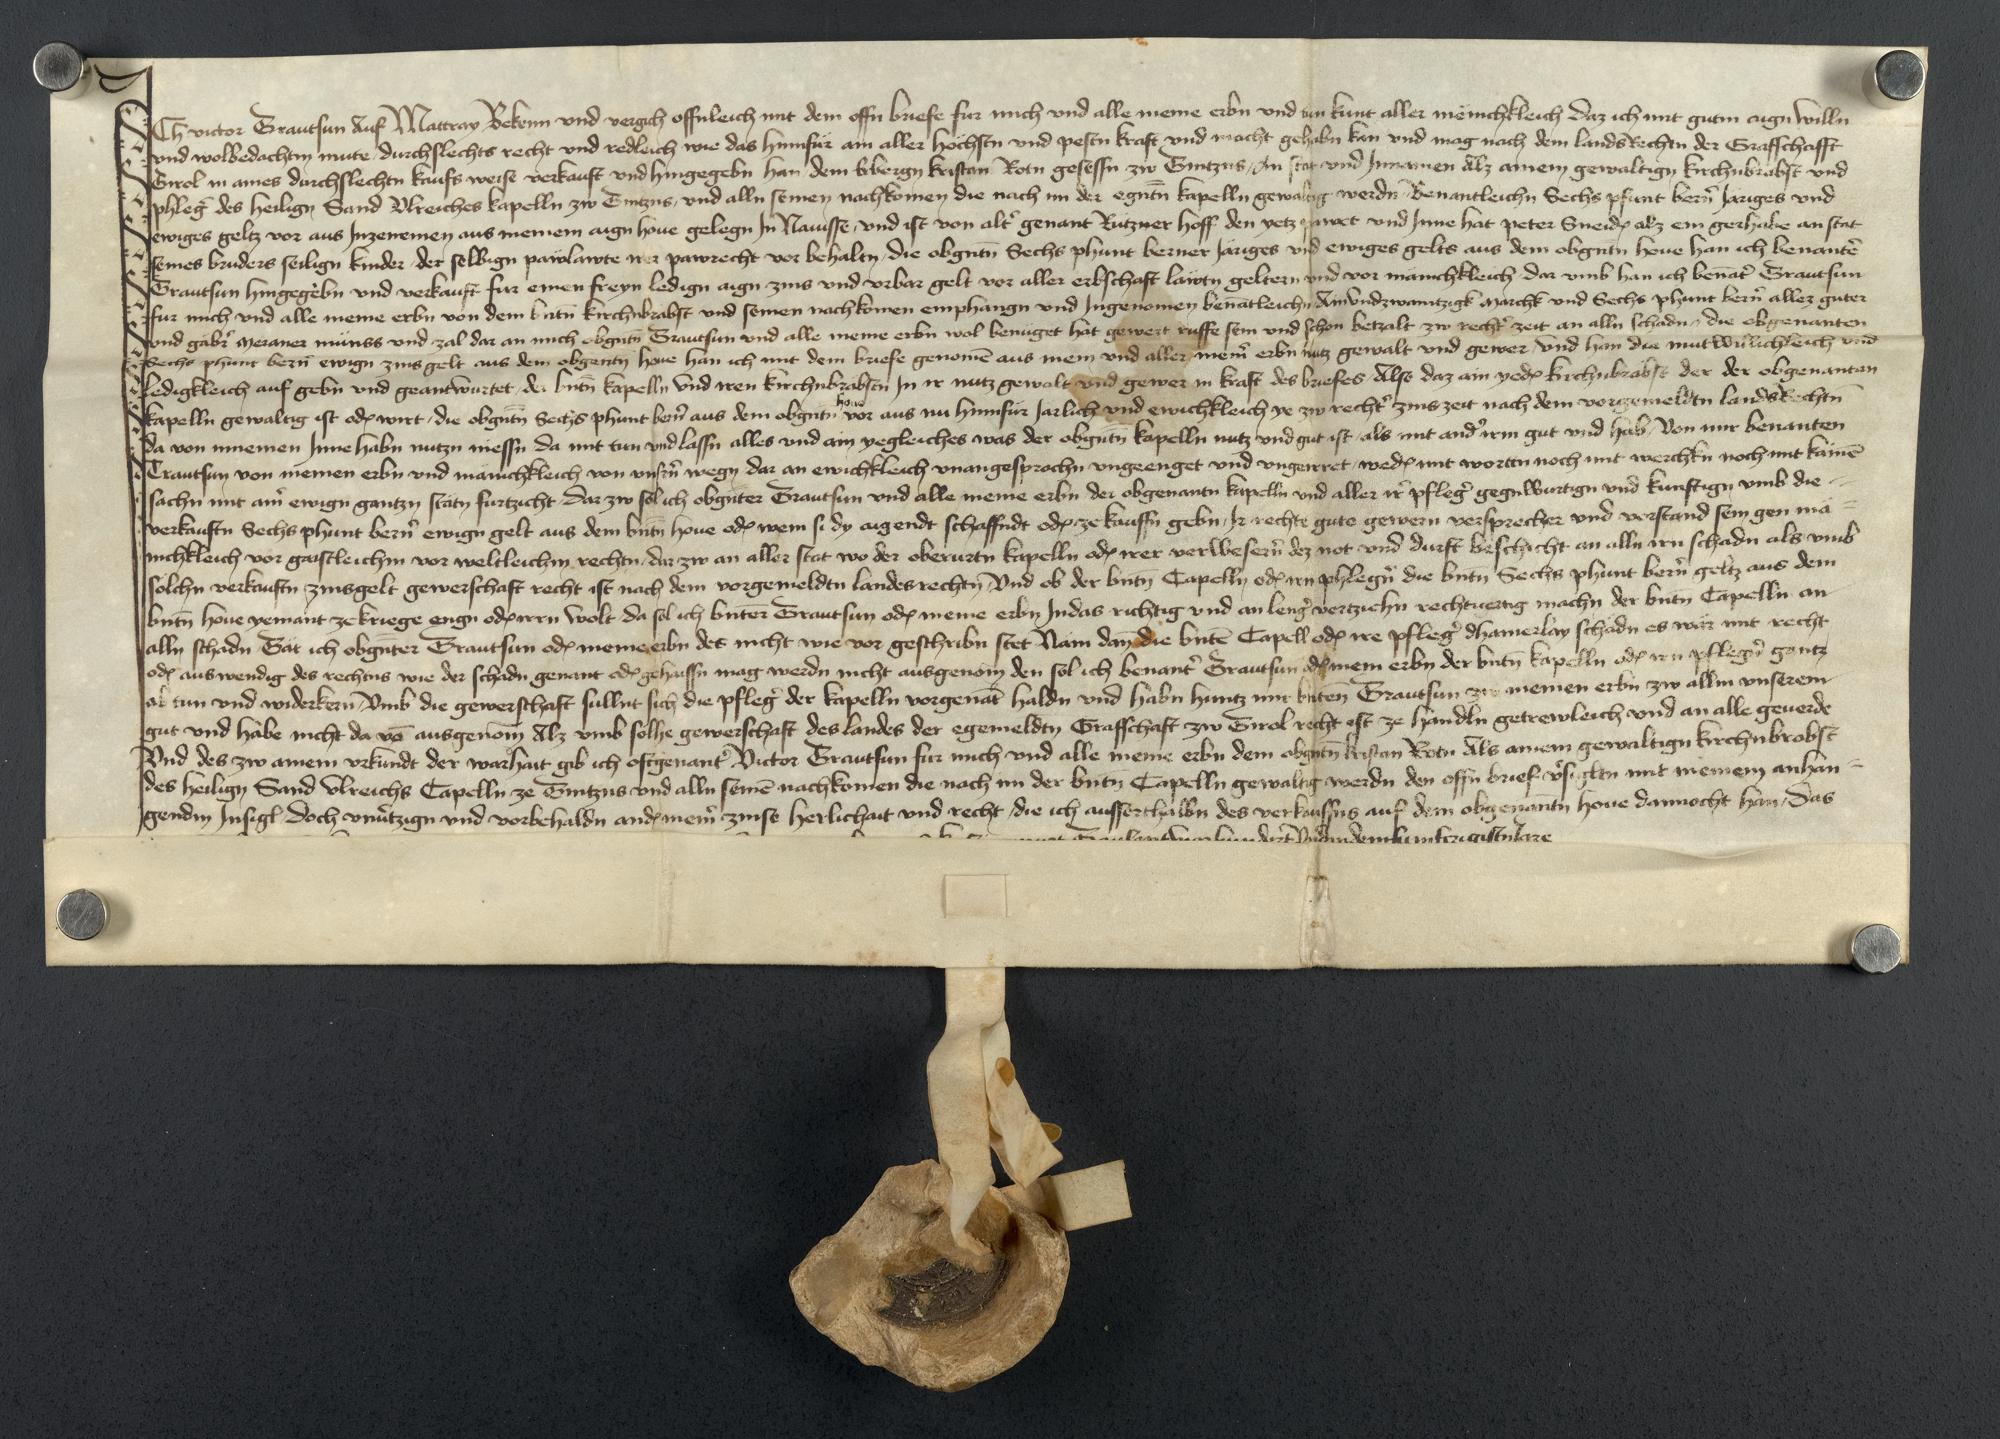 Ich victor Trautsun Auf Mattray Bekenn und vergich offnleich mit dem offn briefe fur mich und alle meine erbn und tun kunt aller mënichkleich daz ich mit gutm aign willn
und wolbedachtm mute durchslechts recht und redleich wie das hinnfür am aller höchstn und pestn kraft und macht gehabn kan und mag nach dem landsRechtn der Graffschafft
Tirol in aines durchslechtn kaufs weise verkauft und hingegebn han dem Kristan Rotn gesessn zw Tintzns An stat und Innamen Alz ainem gewaltign kirchnbrabst und
phleg des heilign Sand Vlreiches kapelln zw Tintzns und alln seinen nachkomen die nach im der egntn kapelln gewaltig werdn Benantleichn Sechs pfunt bern Järiges und
ewiges geltz vor aus Inzenemen aus meinem aign houe gelegn In Nauisse und ist von alt genant Rutzner hoff den yetz pawet und Inne hat peter Sneider alz ein gerhabe an stat
seines bruders seilign kinder der selbign pawlawte irer pawrecht vor behaltn die obgntn Sechs phunt berner Järiges und ewiges gelts aus dem obgntn houe han ich benante
Trautsun hingegebn und verkauft fur einen freyn ledign aign zins und vrbar gelt vor aller erbschaft läwtn geltern und vor mänichkleich dar vmb han ich benāt Trautsun
fur mich und alle meine erbn von dem bntn kirchnbrabst und seinen nachkomen emphangn und Ingenomen benātleichn Ainvndzwaintzigk march und Sechs phunt bern allez guter
und gäbr meraner münss und zal dar an mich obgntn Trautsun und alle meine erbn wol benüget hat gewert ruffe sein und schon betzalt zw recht zeit an alln schadn die obgenanten
Sechs phunt bern ewign zinsgelt aus dem obgentn houe han ich mit dem briefe genomē aus mein und aller meinr erbn nutz gewalt und gewer und han die mutwillichleich und
ledigkleich auf gebn und geantwurtet der bntn kapelln und iren kirchnbrabstn In ir nutz gewalt und gewer in kraft des briefes Also daz ain yed kirchnbrabst der der obgenantn
kapelln gewaltig ist oder wirt die obgntn Sechs phunt bern aus dem obgntn houe vor aus nu hinnfür Jarlich und ewichkleich ye zw recht zinszeit nach dem vorgemeldtn landsRechtn
da von innemen Inne habn nutzn niessn da mit tun und lassn alles und ain yegleiches was der obgntn kapelln nutz und gut ist als mit and irm gut und hab Von mir benanten
Trautsun von meinen erbn und mänichkleich von unsrn wegn dar an ewichkleich unangesprochn ungeenget und ungeirret weder mit wortn noch mit werchkn noch mit kainē
sachn mit ainr ewign gantzn stätn furtzicht Dar zw sol ich obgnter Trautsun und alle meine erbn der obgenantn kapelln und aller ir pfleg gegnwurtign und kunftign vmb die
verkauftn Sechs phunt bern ewign gelt aus dem bntn houe oder wem si dy aigendt schaffndt oder ze kauffn gebn Ir rechte gute gewern versprecher und vorstand sein gen mä
nichkleich vor gaistleichm vor weltleichm rechtn dar zw an aller stat wo der oberurtn kapelln oder irer verwesern dez not und durft beschicht an alln irn schadn als vmb
solchn verkauftn zinsgelt gewerschaft recht ist nach dem vorgemeldtn landesrechtn Und ob der bntn Capelln oder irn phlegrn die bntn Sechs phunt bern geltz aus dem
bntn houe yemant ze kriege engn oder irrn wolt da sol ich bnter Trautsun oder meine erbn Indas richtig und an leng vertziehn rechtuertig machn der bntn Capelln an
alln schadn Tät ich obgnter Trautsun oder meine erbn des nicht wie vor geschribn stet Näm dan die bntē Capell oder ire pfleg dhainerlay schadn es wär mit recht
oder auswendig des rechtns wie der schadn genant oder gehaissn mag werdn nicht ausgenom den sol ich benant Trautsun oder mein erbn der bntn kapelln oder irn pflegrn gantz
ab tun und widerkern Vmb die gewerschaft sullnt sich die pfleg der kapelln vorgenāt haldn und habn hintz mir bntēn Trautsun zw meinen erbn zw allm unserem
gut und habe nicht da vō ausgenom Alz vmb solhe gewerschaft des landes der egemeldtn Graffschaft zw Tirol recht ist ze handln getrewleich und an alle geuerde
Vnd des zw ainem vrkundt der warhait gib ich oftgenant Victor Trautsun fur mich und alle meine erbn dem obgntn Kristan Rotn Als ainem gewaltign kirchnbrobst
des heilign Sand Vlreichs Capelln ze Tintzns und alln seinē nachkomen die nach im der bntn Capelln gewaltig werdn den offn brief vsigltn mit meinem anhan
gendm Insigl doch unutzign und vorbehaldn and meinr zinse herlichait und recht die ich aufferthalbn des verkauffns auf dem obgenantn houe dannocht han Das